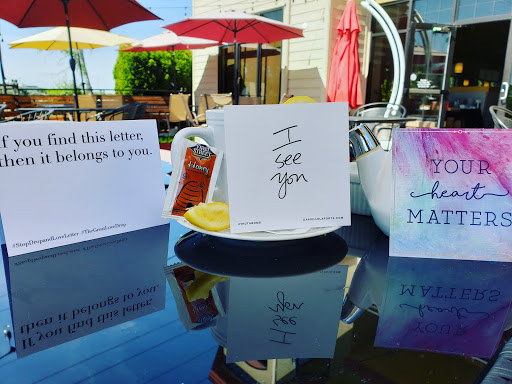 If you find this letter,
then it belongs to you.
#StopDropandLoveLetter #TheGreatLoveDrop
Honey
I
see
you
YOUR
heart
MATTERS